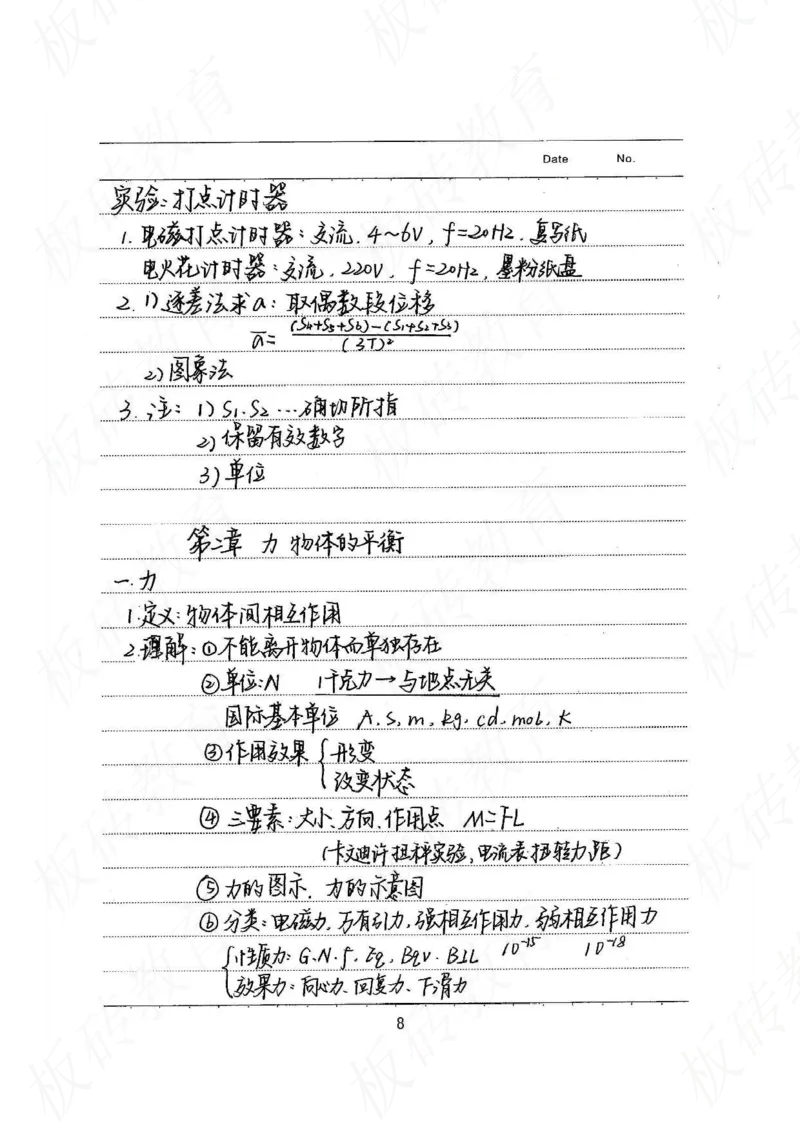 Date No.
实验:打点计时器
1. 电磁打点计时器:交流. 4~6V, f=20Hz. 复写纸
电火花计时器:交流. 220V. f=20Hz, 墨粉纸盘
2. 1)逐差法求a: 取偶数段位移
a̅= (S4+S5+S6)-(S1+S2+S3)/(3T)²
2)图象法
3. 注: 1) S1.S2…确切所指
2)保留有效数字
3)单位
第二章 力 物体的平衡
一.力
1.定义:物体间相互作用
2.理解:①不能离开物体而单独存在
②单位:N 1千克力→与地点无关
国际基本单位 A.s.m.kg.cd.mol.K
③作用效果{形变
改变状态
④三要素:大小、方向、作用点 M=FL
(卡文迪许扭秤实验,电流表扭转力距)
⑤力的图示. 力的示意图
⑥分类:电磁力.万有引力.强相互作用力.弱相互作用力
{性质力:G.N.f.Eq.Bqv.BIL 10⁻¹⁵ 10⁻¹⁸
效果力:向心力、回复力、下滑力
8
板砖教育